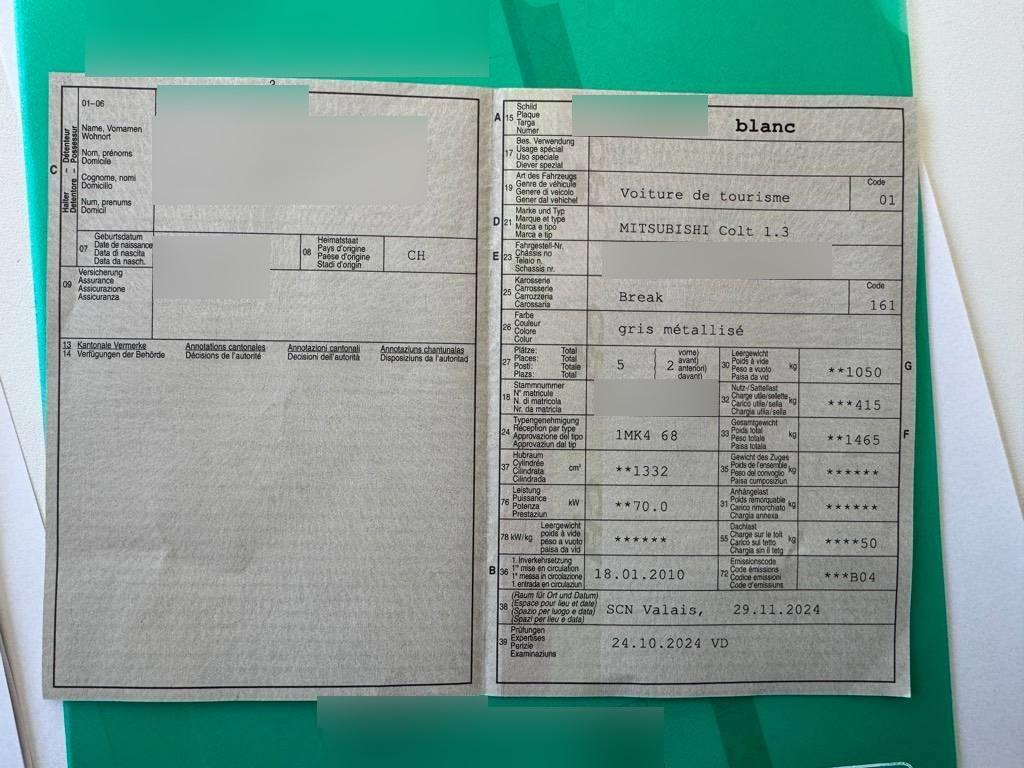 2
01–06
Name, Vornamen
Wohnort
Nom, prénoms
Domicile
Cognome, nomi
Domicilio
Num, prenums
Domicil
C
Halter – Détenteur
Detentore – Possessur
07
Geburtsdatum
Date de naissance
Data di nascita
Data da nasch.
08
Heimatstaat
Pays d'origine
Paese d'origine
Stadi d'origin
CH
09
Versicherung
Assurance
Assicurazione
Assicuranza
13 Kantonale Vermerke Annotations cantonales Annotazioni cantonali Annotaziuns chantunalas
14 Verfügungen der Behörde Décisions de l'autorité Decisioni dell'autorità Disposiziuns da l'autoritad
A 15
Schild
Plaque
Targa
Numer
blanc
17
Bes. Verwendung
Usage spécial
Uso speciale
Diever spezial
19
Art des Fahrzeugs
Genre de véhicule
Genere di veicolo
Gener dal vehichel
Voiture de tourisme
Code
01
D 21
Marke und Typ
Marque et type
Marca e tipo
Marca e tip
MITSUBISHI Colt 1.3
E 23
Fahrgestell-Nr.
Châssis no
Telaio n.
Schassis nr.
25
Karosserie
Carrosserie
Carrozzeria
Carossaria
Break
Code
161
26
Farbe
Couleur
Colore
Colur
gris métallisé
27
Plätze: Total
Places: Total
Posti: Totale
Plazs: Total
5
2
vorne)
avant)
anteriori)
davant)
30
Leergewicht
Poids à vide
Peso a vuoto
Paisa da vid
kg
**1050
G
18
Stammnummer
N° matricule
N. di matricola
Nr. da matricla
32
Nutz-/Sattellast
Charge utile/sellette
Carico utile/sella
Chargia utila/sella
kg
***415
24
Typengenehmigung
Réception par type
Approvazione del tipo
Approvaziun dal tip
1MK4 68
33
Gesamtgewicht
Poids total
Peso totale
Paisa totala
kg
**1465
F
37
Hubraum
Cylindrée
Cilindrata
Cilindrada
cm³
**1332
35
Gewicht des Zuges
Poids de l'ensemble
Peso del convoglio
Paisa cumposiziun
kg
******
76
Leistung
Puissance
Potenza
Prestaziun
kW
**70.0
31
Anhängelast
Poids remorquable
Carico rimorchiato
Chargia annexa
kg
******
78 kW/kg
Leergewicht
poids à vide
peso a vuoto
paisa da vid
******
55
Dachlast
Charge sur le toit
Carico sul tetto
Chargia sin il tetg
kg
****50
B 36
1. Inverkehrsetzung
1re mise en circulation
1a messa in circolazione
1. entrada en circulaziun
18.01.2010
72
Emissionscode
Code émissions
Codice emissioni
Code d'emissiuns
***B04
38
(Raum für Ort und Datum)
(Espace pour lieu et date)
(Spazio per luogo e data)
(Spazi per lieu e data)
SCN Valais, 29.11.2024
39
Prüfungen
Expertises
Perizie
Examinaziuns
24.10.2024 VD